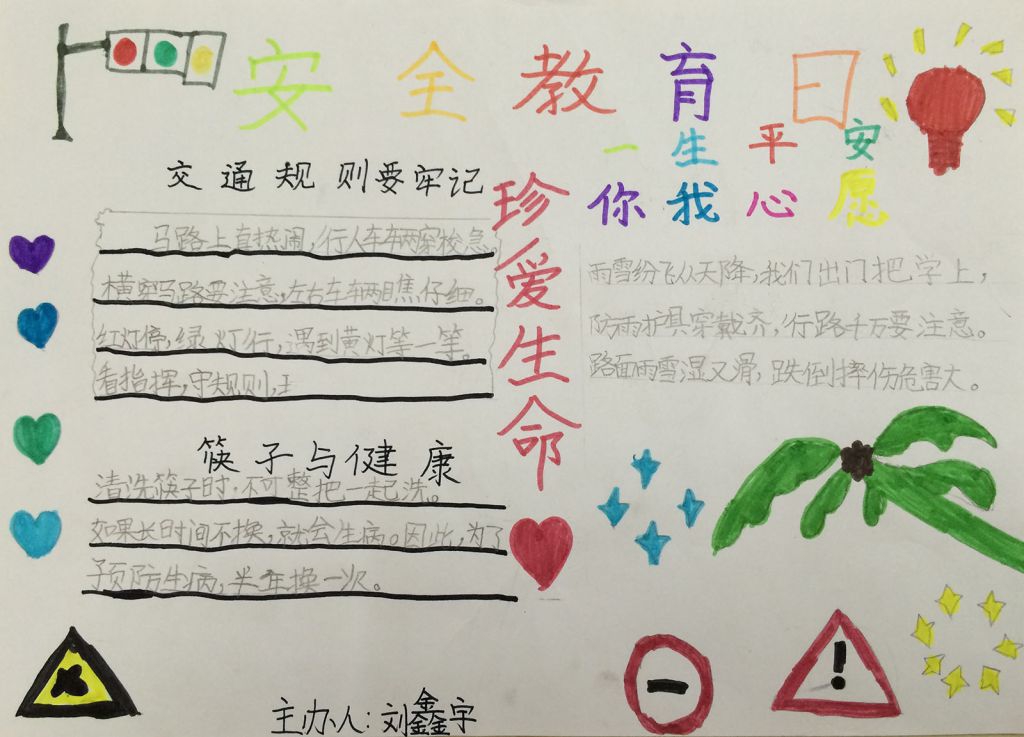 安全教育日
一生平安
你我心愿
交通规则要牢记
马路上真热闹，行人车辆穿梭急。
横穿马路要注意，左右车辆瞧仔细。
红灯停，绿灯行，遇到黄灯等一等。
看指挥，守规则，
筷子与健康
清洗筷子时，不可整把一起洗。
如果长时间不换，就会生病。因此，为了
预防生病，半年换一次。
珍爱生命
雨雪纷飞从天降，我们出门把学上，
防雨护具穿戴齐，行路千万要注意。
路面雨雪湿又滑，跌倒摔伤危害大。
主办人：刘鑫宇